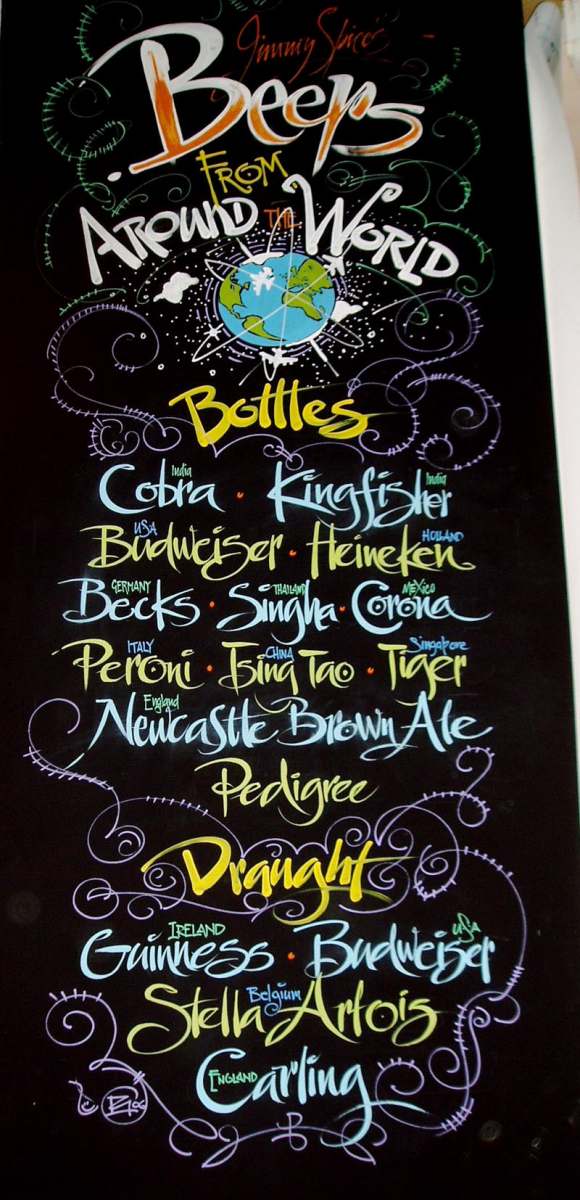 Jimmy Spice's
Beers
FROM
AROUND THE WORLD
Bottles
India India
Cobra · Kingfisher
USA HOLLAND
Budweiser · Heineken
GERMANY THAILAND MEXICO
Becks · Singha · Corona
ITALY CHINA Singapore
Peroni · Tsing Tao · Tiger
England
Newcastle Brown Ale
Pedigree
Draught
IRELAND USA
Guinness · Budweiser
Belgium
Stella Artois
ENGLAND
Carling